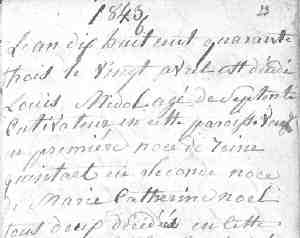 1843
23
L'an dix huit cent quarante
trois le vingt avril est décédé
Louis Medol agé de Septente
Cultivateur en cette paroisse veuf
en première noce de Reine
quintaet en seconde noce
Marie Catherine noel
tous deux décédés en cette